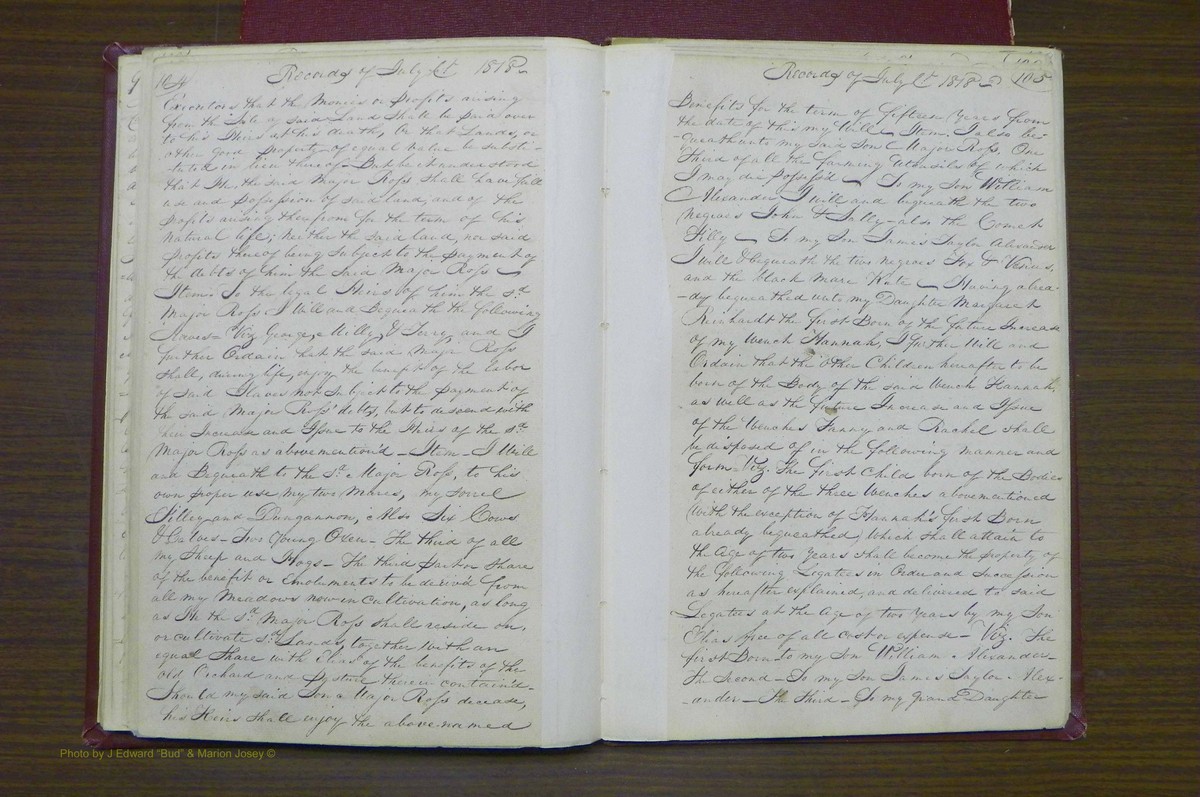 104 Records of July Ct 1818
Executors that the Monies or profits arising
from the Sale of said Land shall be paid over
to his Heirs at his death, Or that Lands, or
other good property of equal value be substi-
-tuted in lieu thereof - But be it understood
that He, the said Major Ross shall have full
use and possession of said land, and of the
profits arising therefrom for the term of his
natural life; neither the said land, nor said
profits thereof being subject to the payment of
the debts of him the said Major Ross
Item. To the legal Heirs of him the sd.
Major Ross I Will and Bequeath the following
Slaves - Viz George, Milly, & Terry, and I
further Ordain that the said Major Ross
shall, during life, enjoy the benefit of the labor
of said Slaves not subject to the payment of
the said Major Ross' debts, but to descend with
their Increase and Issue to the Heirs of the sd.
Major Ross as abovemention'd - Item - I Will
and Bequeath to the sd. Major Ross, to his
own proper use my two Mares, my Sorrel
Filley and Dungannon, Also Six Cows
& Calves - Two Young Oxen - the third of all
my Sheep and Hogs - the third part or share
of the benefit or Emoluments to be derived from
all my Meadows now in Cultivation, as long
as He the sd. Major Ross shall reside on,
or cultivate sd. Lands, together with an
equal share with Elias of the benefits of the
old Orchard and pasture therein contain'd -
Should my said Son Major Ross decease,
his Heirs shall enjoy the above named
Records of July Ct. 1818 105
Benefits for the term of fifteen Years from
the date of this my Will - Item. I also be-
-queath unto my said Son Major Ross, One
third of all the farming Utensils of which
I may die possess'd - To my Son William
Alexander I will and bequeath the two
negroes John & Sally - also the Comet
Filly - To my Son James Taylor Alexander
I will & bequeath the two negroes Fox & Venus,
and the black Mare Kate - Having alrea-
-dy bequeathed unto my Daughter Margaret
Reinhardt the first Born of the future Increase
of my Wench Hannah, I further Will and
Ordain that the other Children hereafter to be
born of the Body of the said Wench Hannah,
as well as the future Increase and Issue
of the Wenches Fanny and Rachel shall
be disposed of in the following manner and
form - Viz. The first Child born of the Bodies
of either of the three Wenches abovementioned
(with the exception of Hannah's first Born
already bequeathed) which shall attain to
the Age of two Years shall become the property of
the following Legatees in Order and Succession
as hereafter explained, and delivered to said
Legatees at the Age of two Years by my Son
Elias free of all cost or expense - Viz. The
first Born to my Son William Alexander -
the Second - To my Son James Taylor Alex-
-ander - the third - To my grand Daughter
Photo by J Edward "Bud" & Marion Josey ©